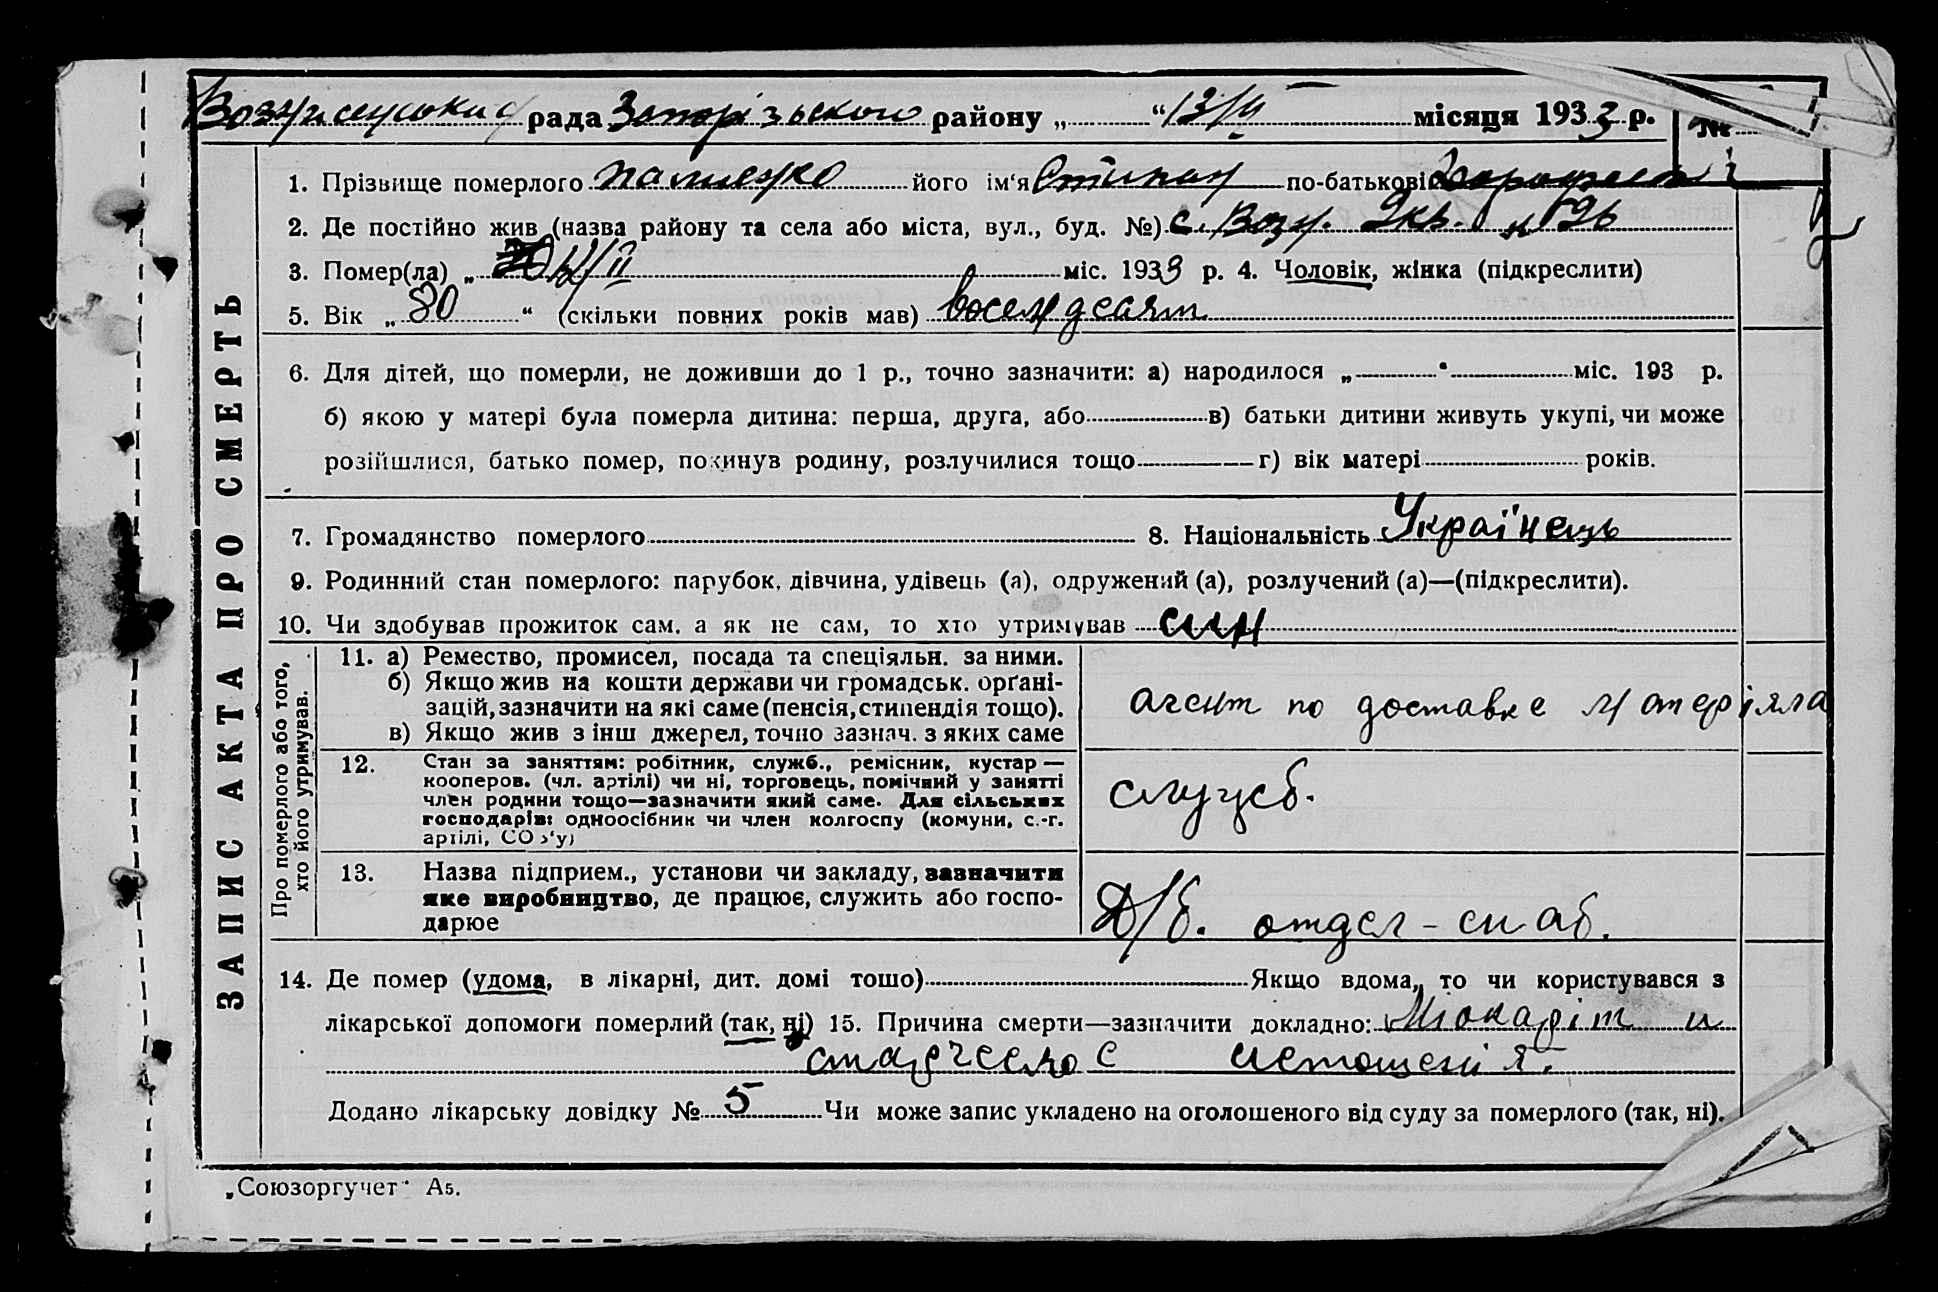 рада Запорізького району „ “ 13/II місяця 1933 р. №
1. Прізвище померлого його ім‘я Степан по-батькові
2. Де постійно жив (назва району та села або міста, вул., буд. №) с. Возн.
3. Помер(ла) „ 12/II міс. 1933 р. 4. Чоловік, жінка (підкреслити)
5. Вік „ 80 “ (скільки повних років мав) восемдесят
6. Для дітей, що померли, не доживши до 1 р., точно зазначити: а) народилося „ “ міс. 193 р.
б) якою у матері була померла дитина: перша, друга, або в) батьки дитини живуть укупі, чи може
розійшлися, батько помер, покинув родину, розлучилися тощо г) вік матері років.
7. Громадянство померлого 8. Національність Українець
9. Родинний стан померлого: парубок, дівчина, удівець (а), одружений (а), розлучений (а)—(підкреслити).
10. Чи здобував прожиток сам, а як не сам, то хто утримував син
ЗАПИС АКТА ПРО СМЕРТЬ
Про померлого або того,
хто його утримував.
11. а) Ремество, промисел, посада та спеціяльн. за ними.
б) Якщо жив на кошти держави чи громадськ. орґані-
зацій, зазначити на які саме (пенсія, стипендія тощо).
в) Якщо жив з інш джерел, точно зазнач. з яких саме
агент по доставке материяла
12. Стан за заняттям: робітник, служб., ремісник, кустар —
кооперов. (чл. артілі) чи ні, торговець, помічний у занятті
член родини тощо—зазначити який саме. Для сільських
господарів: одноосібник чи член колгоспу (комуни, с.-г.
артілі, СОЗ‘у)
служб.
13. Назва підприєм., установи чи закладу, зазначити
яке виробництво, де працює, служить або госпо-
дарює
отдел - снаб.
14. Де помер (удома, в лікарні, дит. домі тошо) Якщо вдома, то чи користувався з
лікарської допомоги померлий (так, ні) 15. Причина смерти—зазначити докладно: Міокардіт и
истощенія.
Додано лікарську довідку № 5 Чи може запис укладено на оголошеного від суду за померлого (так, ні).
„Союзоргучет“ А5.